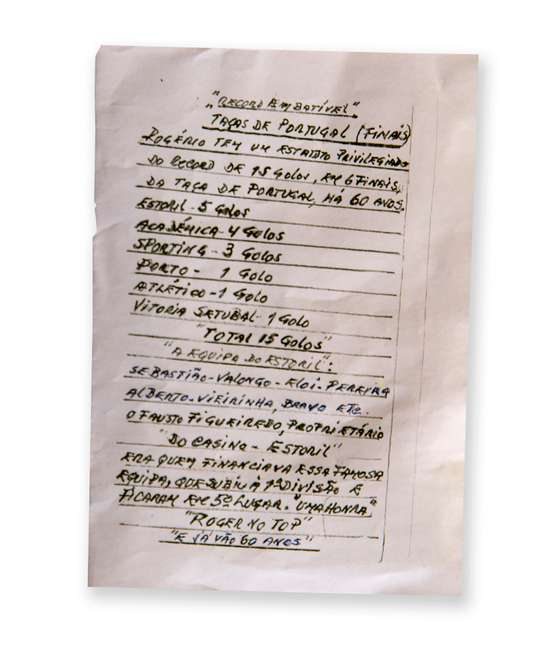 "RECORD IMBATÍVEL"
TAÇAS DE PORTUGAL (FINAIS)
ROGÉRIO TEM UM ESTATUTO PRIVILEGIADO
DO RECORD DE 15 GOLOS, EM 6 FINAIS,
DA TAÇA DE PORTUGAL, HÁ 60 ANOS.
ESTORIL - 5 GOLOS
ACADÉMICA - 4 GOLOS
SPORTING - 3 GOLOS
PORTO - 1 GOLO
ATLÉTICO - 1 GOLO
VITORIA SETUBAL - 1 GOLO
"TOTAL 15 GOLOS"
"A EQUIPA DO ESTORIL":
SEBASTIÃO - VALONGO - ELOI - PEREIRA
ALBERTO - VIEIRINHA, BRAVO ETC.
O FAUSTO FIGUEIREDO, PROPRIETÁRIO
"DO CASINO - ESTORIL"
ERA QUEM FINANCIAVA ESSA FAMOSA
EQUIPA, QUE SUBIU À 1ª DIVISÃO E
FICARAM EM 5º LUGAR. "UMA HONRA"
"ROGER NO TOP"
"E JÁ VÃO 60 ANOS"